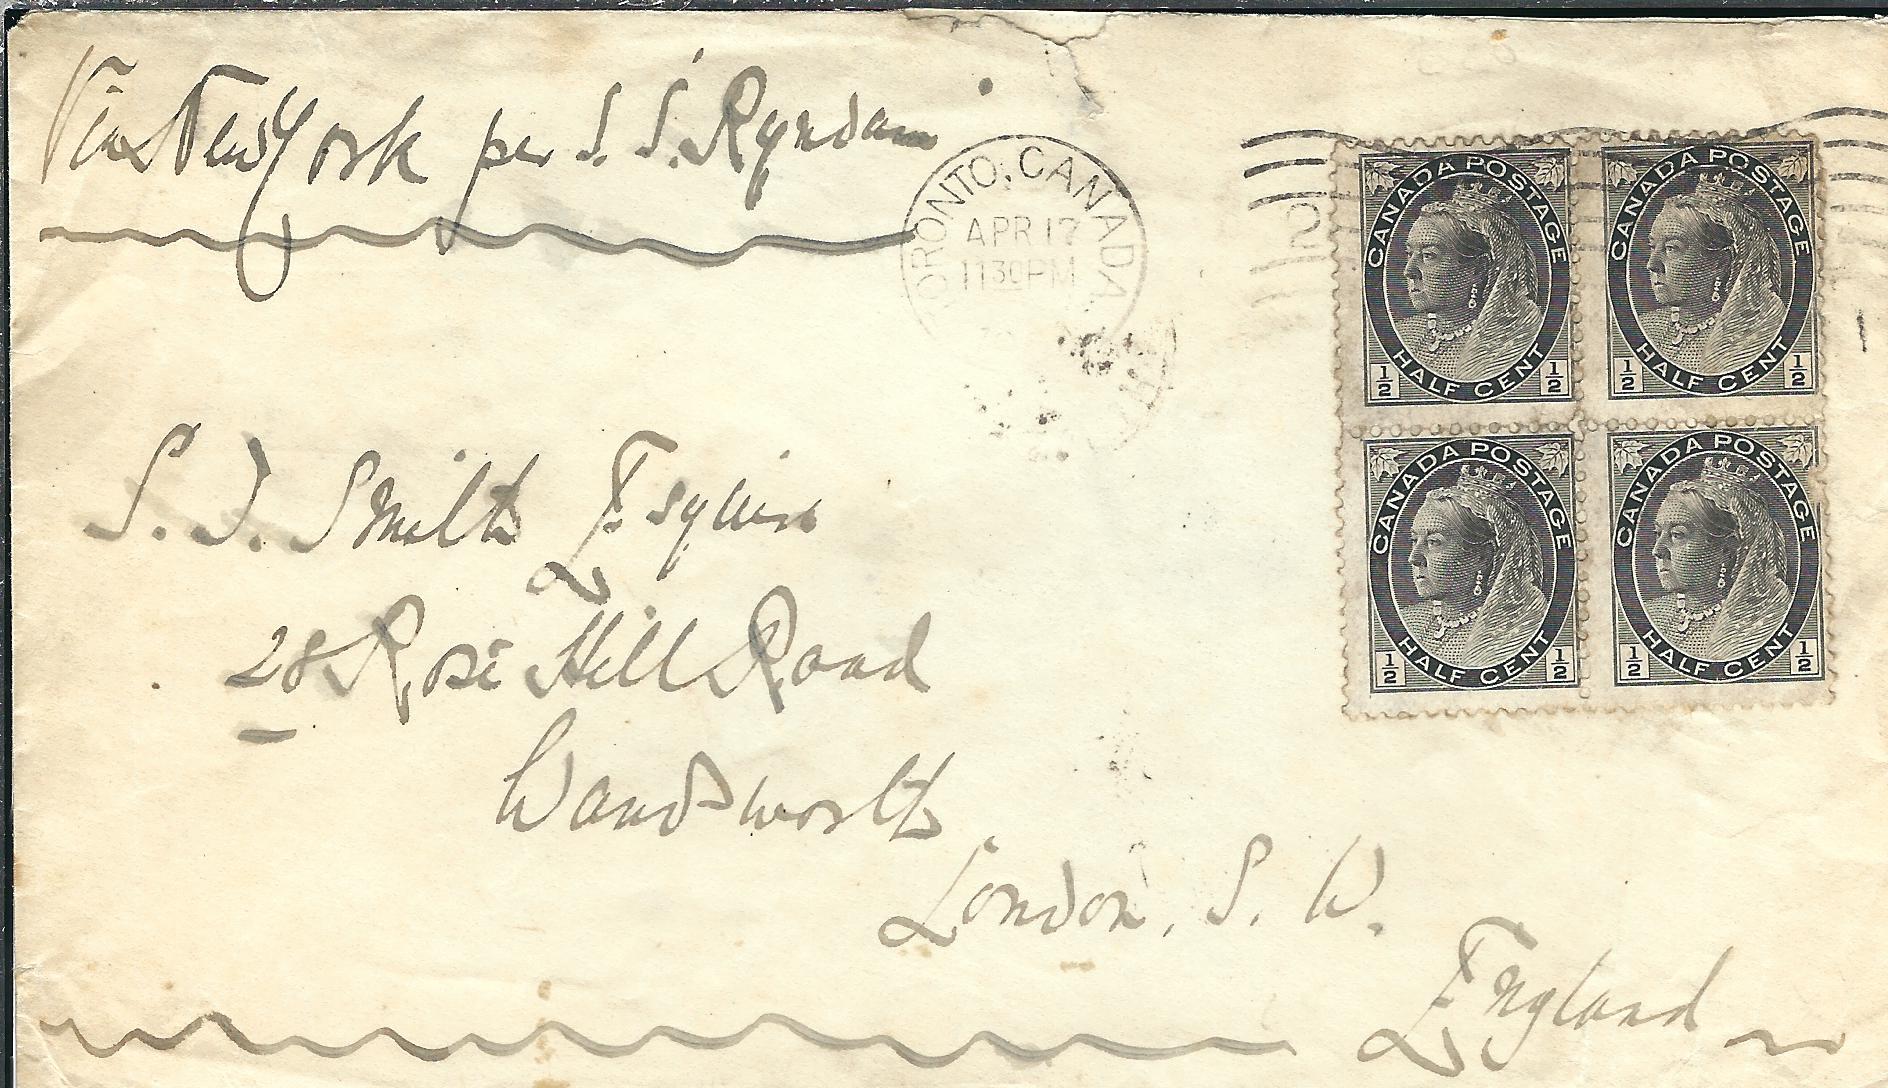 Via New York per S.S. Ryndam
TORONTO, CANADA
APR 17
1130PM
CANADA POSTAGE
HALF CENT
1/2 1/2
CANADA POSTAGE
HALF CENT
1/2 1/2
CANADA POSTAGE
HALF CENT
1/2 1/2
CANADA POSTAGE
HALF CENT
1/2 1/2
S. J. Smith Esquire
28 Rose Hill Road
Wandsworth
London, S. W.
England